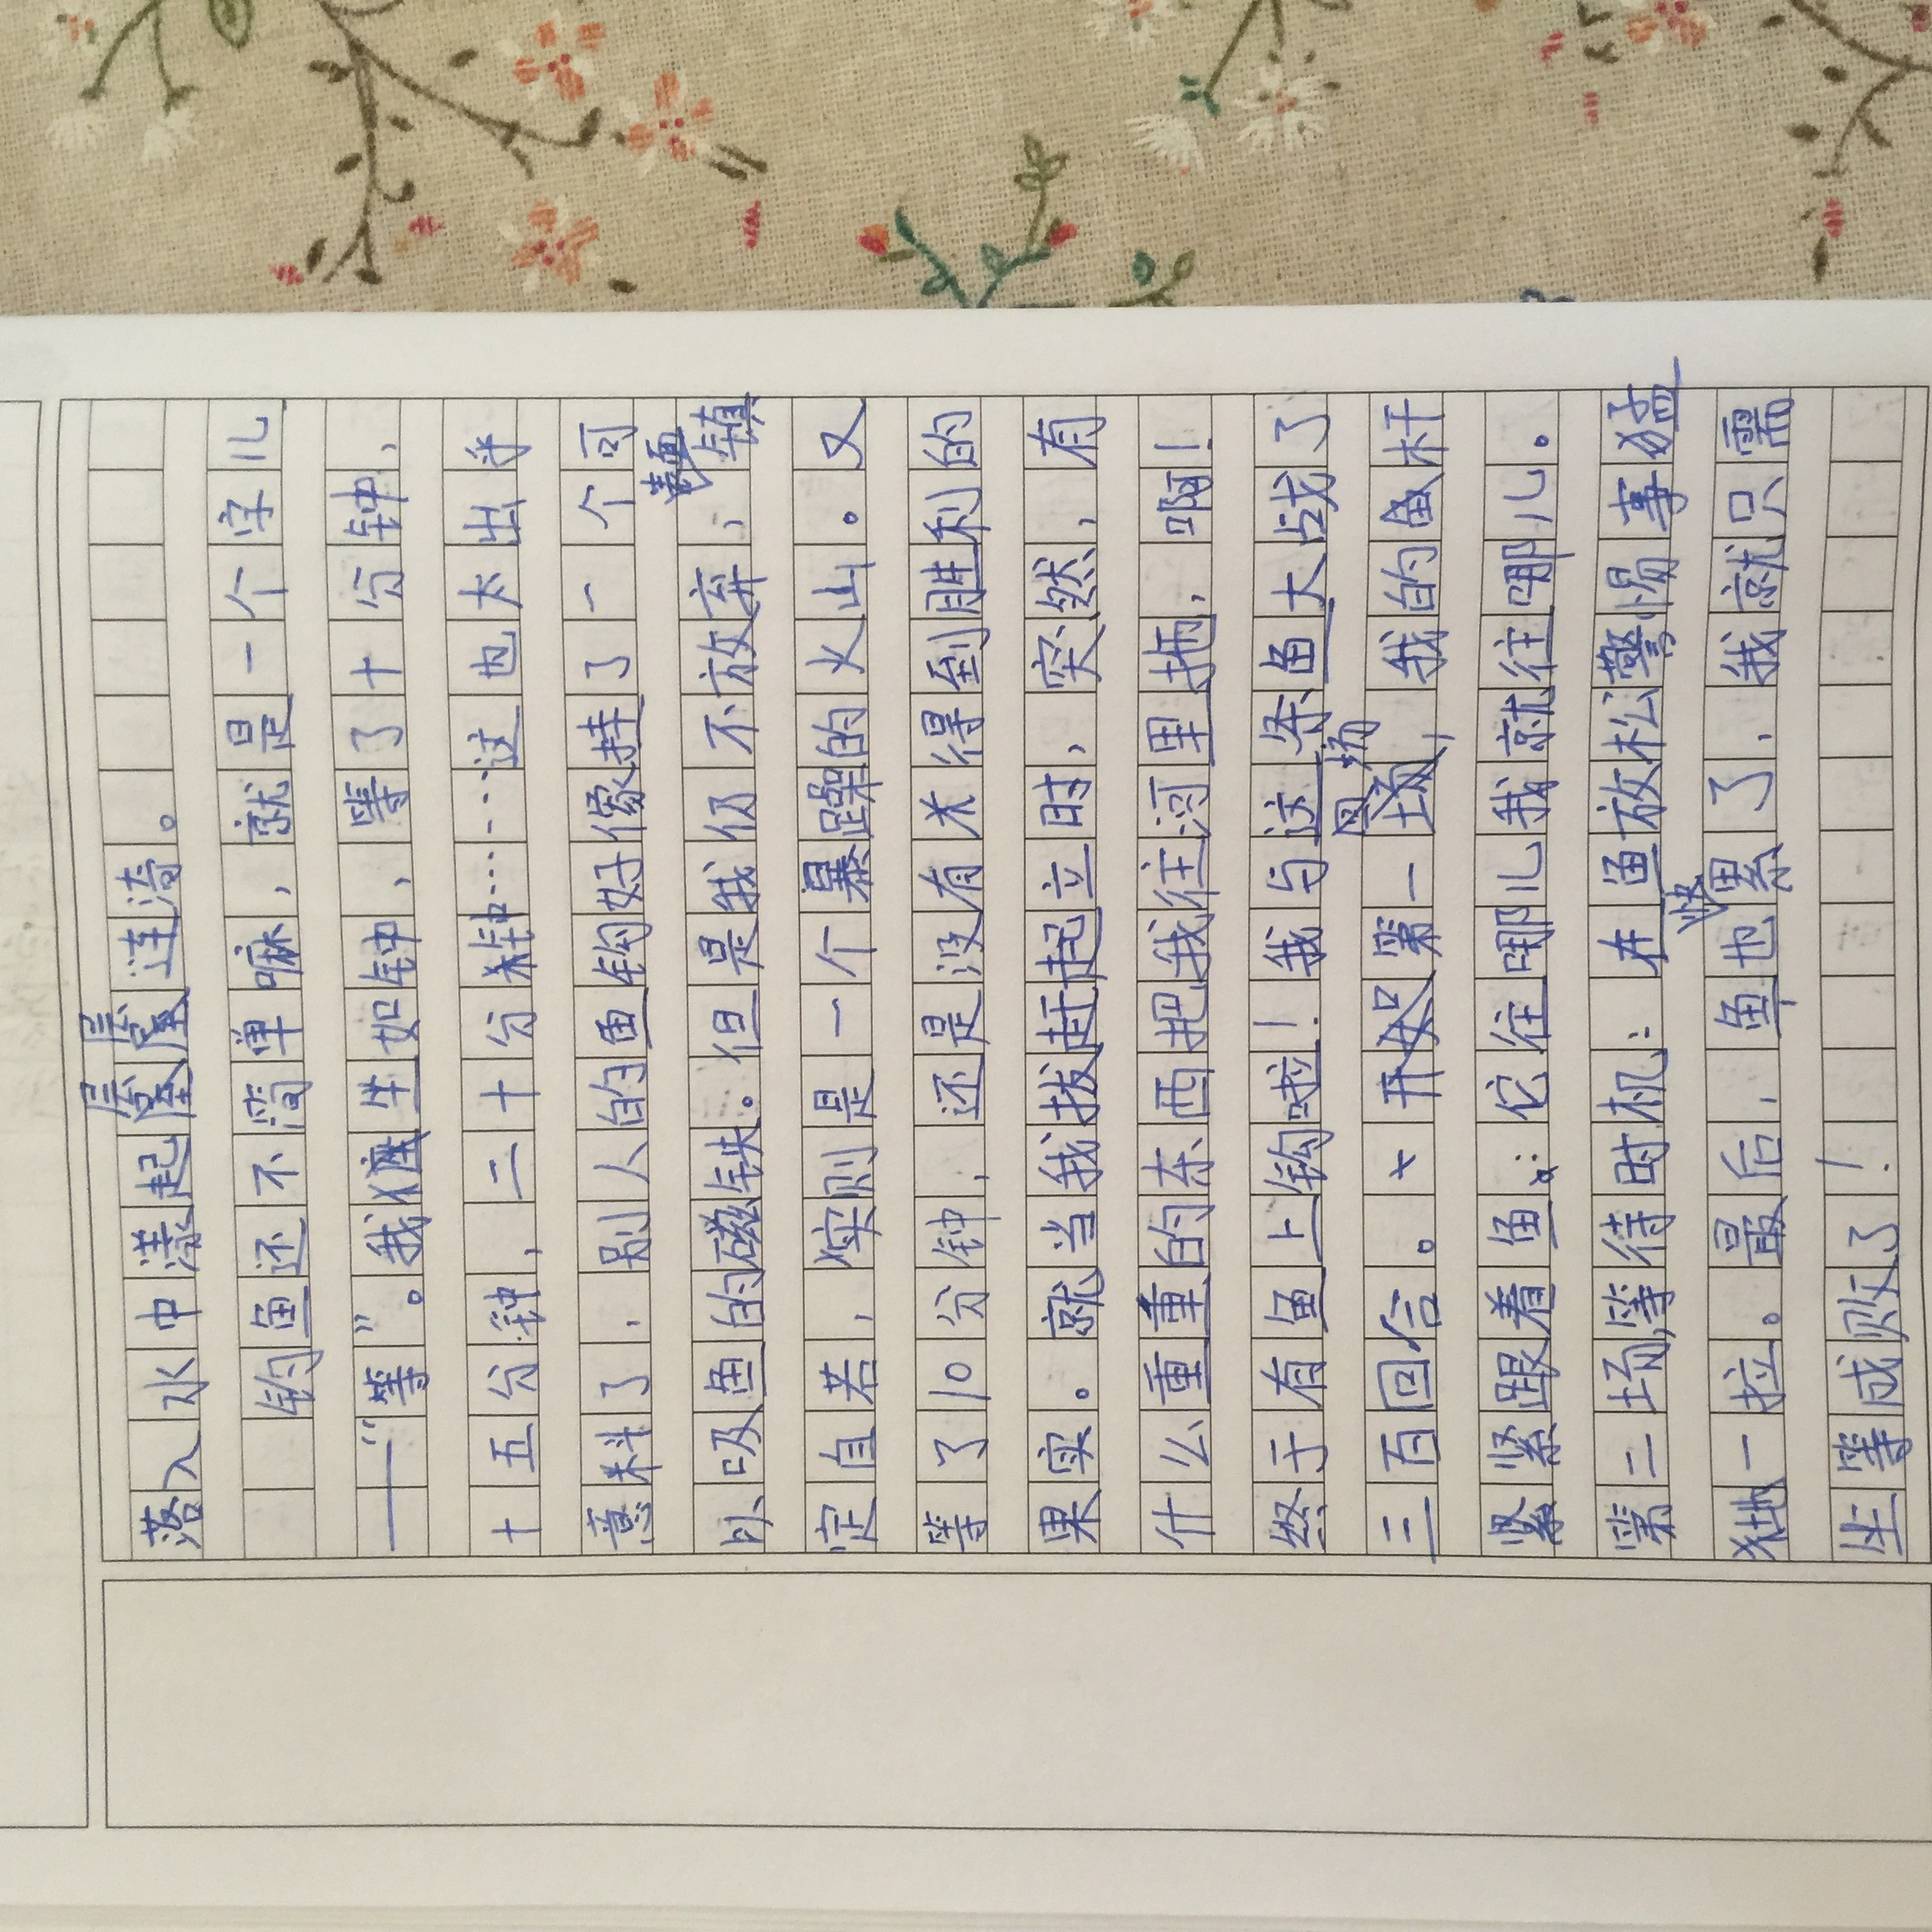 落入水中漾起层层连漪。
钓鱼还不简单嘛，就是一个字儿
——“等”。我坐如钟，等了十分钟，
十五分钟，二十分钟……这也太出乎
意料了，别人的鱼钩好像挂了一个可
以吸鱼的磁铁。但是我仍不放弃，表面镇
定自若，实则是一个暴躁的火山。又
等了10分钟，还是没有关得到胜利的
果实。就当我拔赶起立时，突然，有
什么重重的东西把我往河里捅，啊！
终于有鱼上钩啦！我与这条鱼大战了
三百回合。开始第一回场，我的鱼杆
紧紧跟着鱼：它往哪儿我就往哪儿。
第二场，等待时机：在鱼放松警惕事猛
地一拉。最后，鱼也快累了，我就只需
坐等成败了！